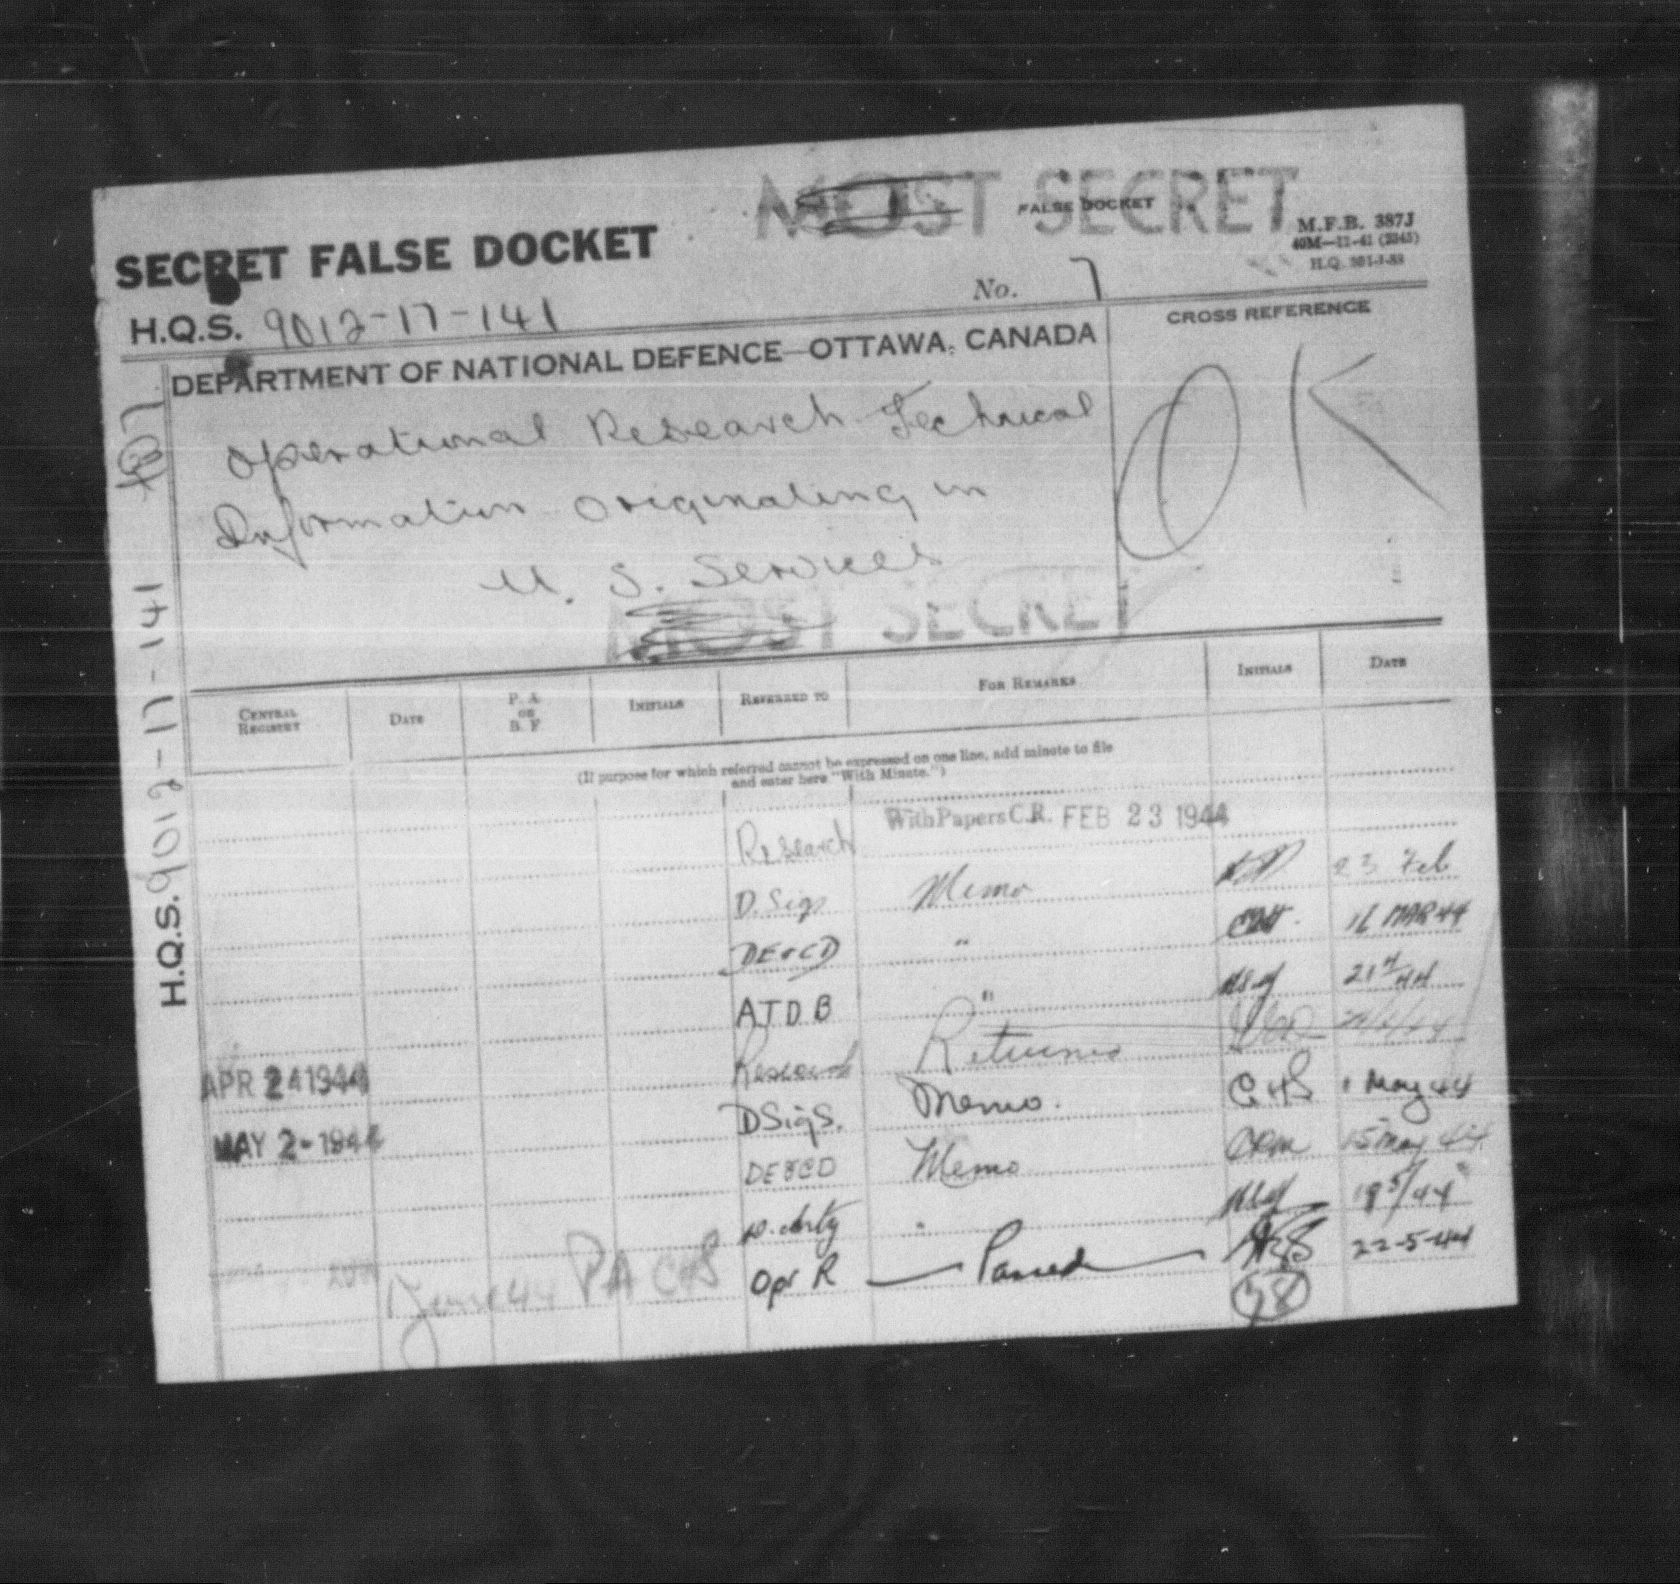 MOST SECRET
FALSE DOCKET
M.F.B. 387J
40M—11-41 (3345)
H.Q.
SECRET FALSE DOCKET
No. 7
H.Q.S. 9012-17-141
CROSS REFERENCE
DEPARTMENT OF NATIONAL DEFENCE—OTTAWA, CANADA
OK
Operational Research Technical
Information Originating in
U. S. Services
MOST SECRET
H.Q.S. 9012-17-141
CENTRAL REGISTRY DATE P. A. OR B. F. INITIALS REFERRED TO FOR REMARKS INITIALS DATE
(If purpose for which referred cannot be expressed on one line, add minute to file
and enter here "With Minute.")
With Papers C.R. FEB 23 1944
Research
D. Sigs Memo 23 Feb
DE&CD " 16 MAR 44
ATDB " 21 4 44
APR 24 1944 Research Returned
MAY 2 - 1944 DSigS. Memo. CHS 1 May 44
DE&CD Memo CRM 15 May 44
D. Arty " 19 5/44
1 June 44 PA CHS Opr R Passed 22-5-44
38